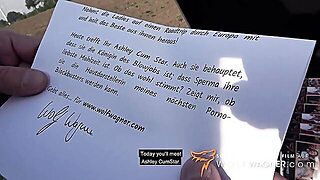 Nehmt die Ladies auf einen Roadtrip durch Europa mit
und holt das Beste aus ihnen heraus!
Heute trefft Ihr Ashley Cum Star. Auch sie behauptet,
dass sie die Königin des Blowjobs ist, dass Sperma ihre
liebste Mahlzeit ist. Ob das wohl stimmt? Zeigt mir, ob
sie die Hauptdarstellerin meines nächsten Porno-
Blockbusters werden kann.
Gebt alles, für www.wolfwagner.com
Wolf Wagner
Today you'll meet
Ashley CumStar
WOLFWAGNER.COM